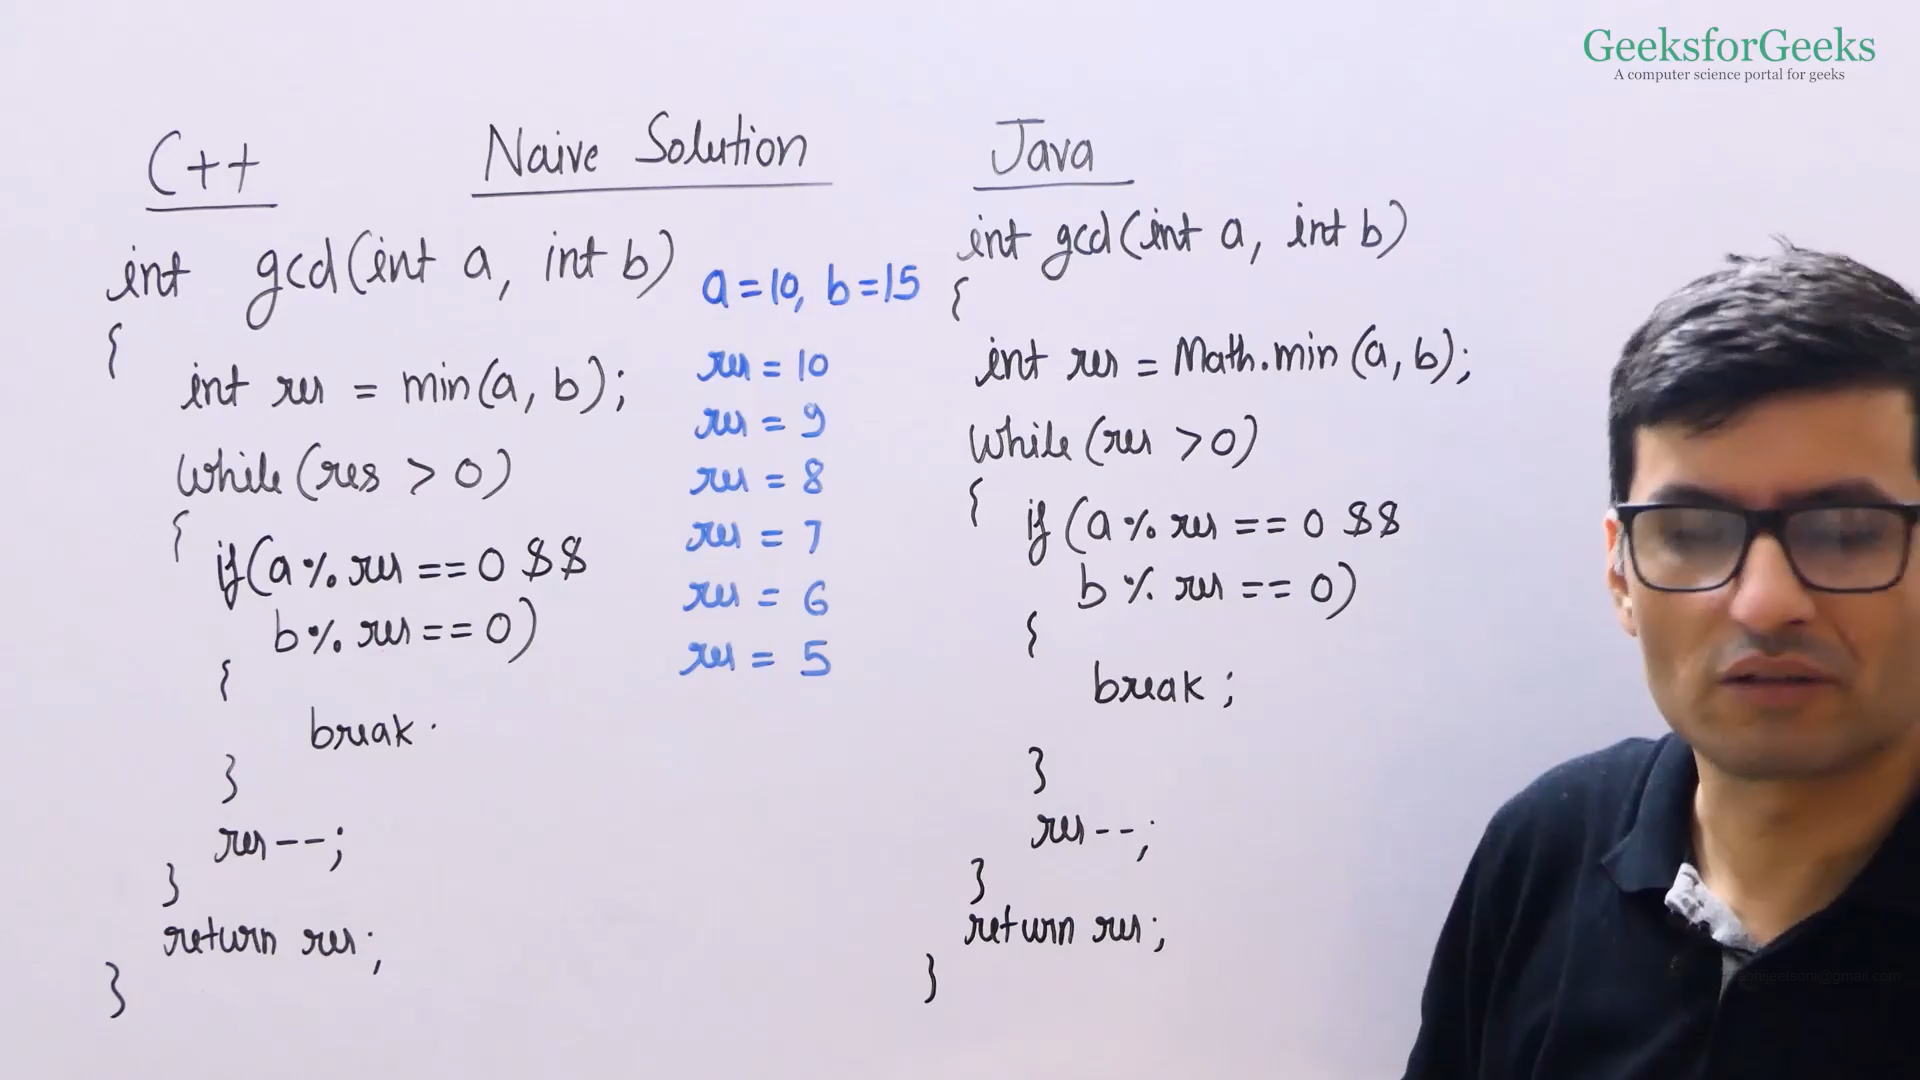 GeeksforGeeks
A computer science portal for geeks
C++
Naive Solution
Java
int gcd(int a, int b)
{
int res = min(a, b);
while(res > 0)
{
if(a % res == 0 &&
b % res == 0)
{
break
}
res--;
}
return res;
}
a = 10, b = 15
res = 10
res = 9
res = 8
res = 7
res = 6
res = 5
int gcd(int a, int b)
{
int res = Math.min(a, b);
while(res > 0)
{
if(a % res == 0 &&
b % res == 0)
{
break;
}
res--;
}
return res;
}